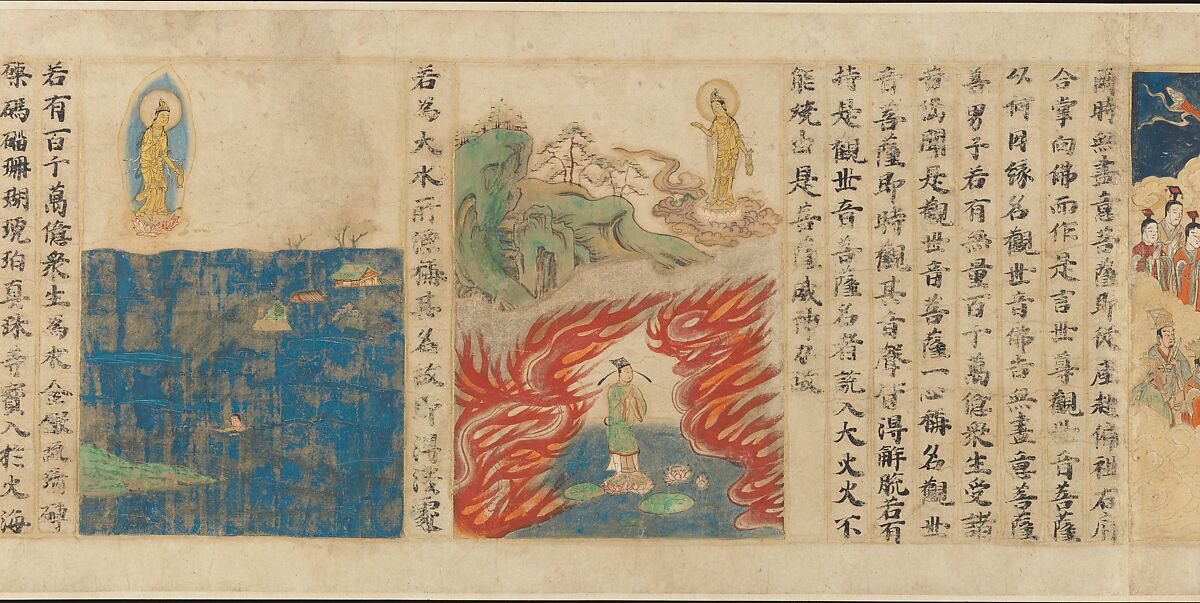 爾時無盡意菩薩即從座起偏袒右肩
合掌向佛而作是言世尊觀世音菩薩
以何因緣名觀世音佛告無盡意菩薩
善男子若有無量百千萬億衆生受諸
苦惱聞是觀世音菩薩一心稱名觀世
音菩薩即時觀其音聲皆得解脫若有
持是觀世音菩薩名者設入大火火不
能燒由是菩薩威神力故
若為大水所漂稱其名號即得淺處
若有百千萬億衆生為求金銀琉璃硨
磲碼碯珊瑚琥珀真珠等寶入於大海